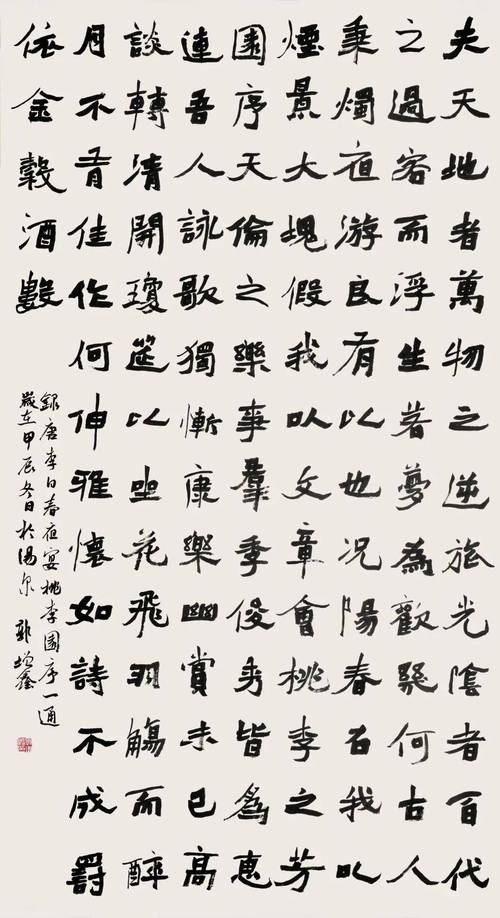 夫天地者萬物之逆旅光陰者百代
之過客而浮生若夢為歡幾何古人
秉燭夜游良有以也況陽春召我以
煙景大塊假我以文章會桃李之芳
園序天倫之樂事羣季俊秀皆為惠
連吾人詠歌獨慚康樂幽賞未已高
談轉清開瓊筵以坐花飛羽觴而醉
月不有佳作何伸雅懷如詩不成罰
依金穀酒數
錄唐李白春夜宴桃李園序一通
歲在甲辰冬日於湯 郭增鑫